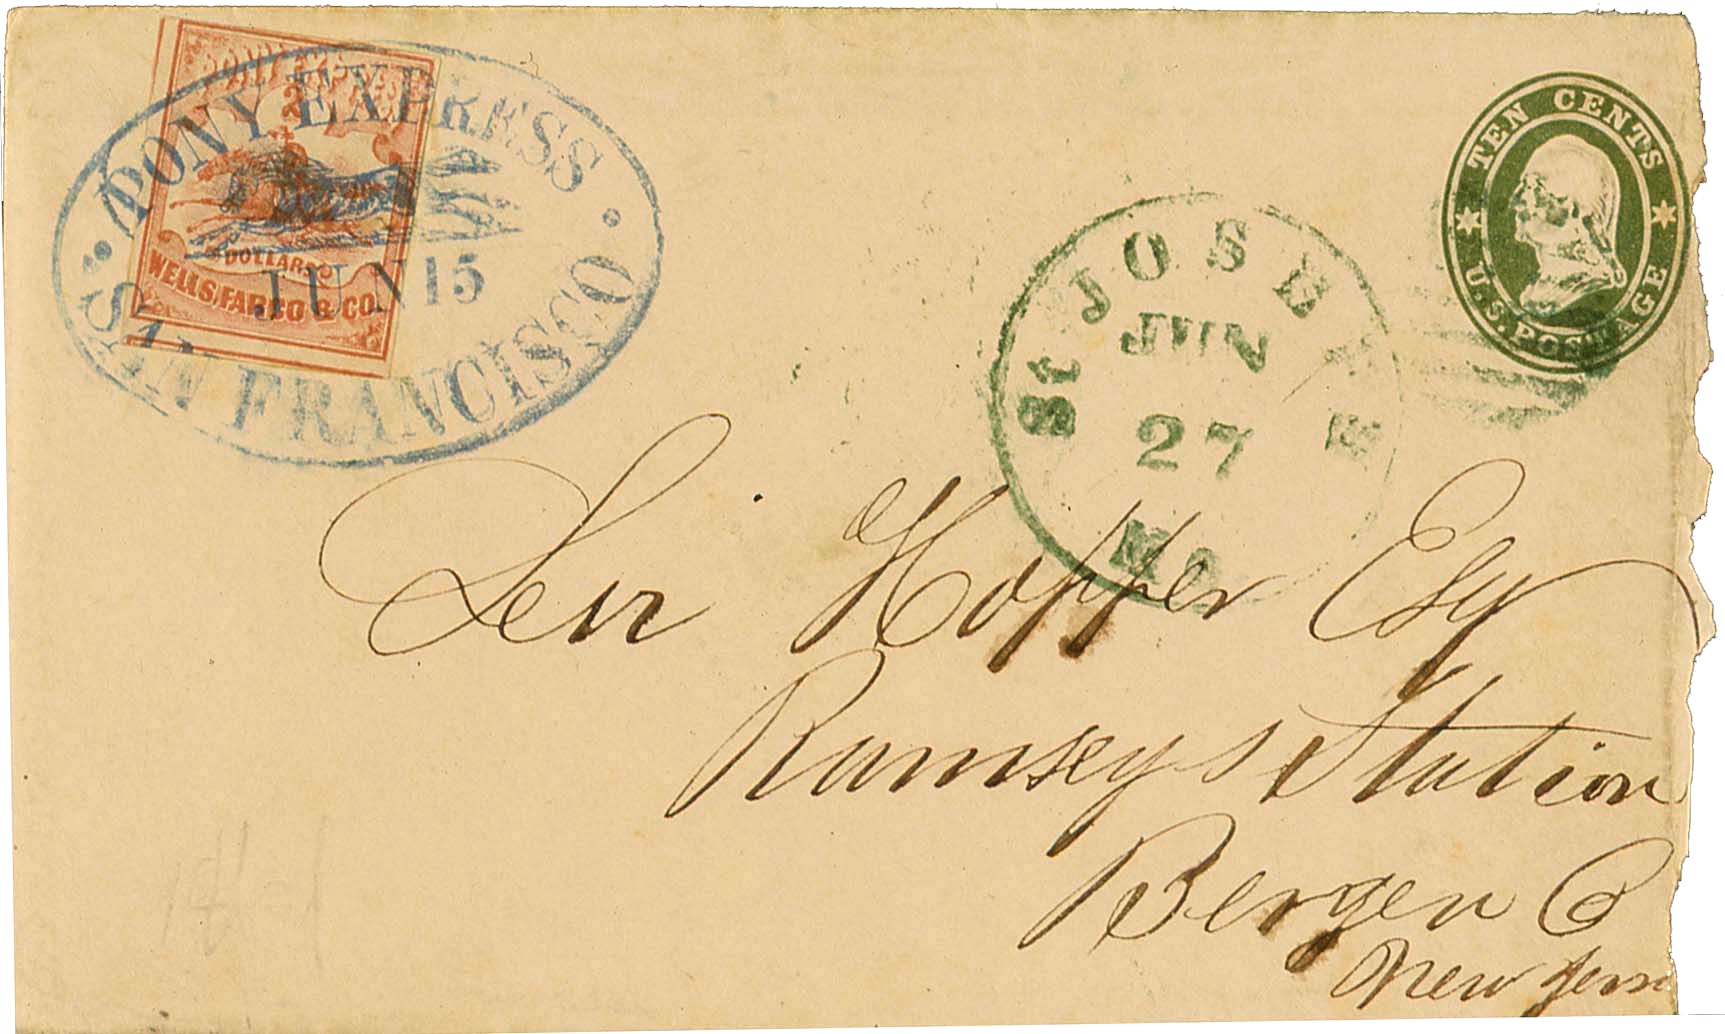 PONY EXPRESS
JUN 15
SAN FRANCISCO
2
DOLLARS
WELLS, FARGO & CO.
St JOSEPH
JUN
27
MO
TEN CENTS
U.S. POSTAGE
Levi Hopper Esq
Ramseys Station
Bergen Co
New Jers